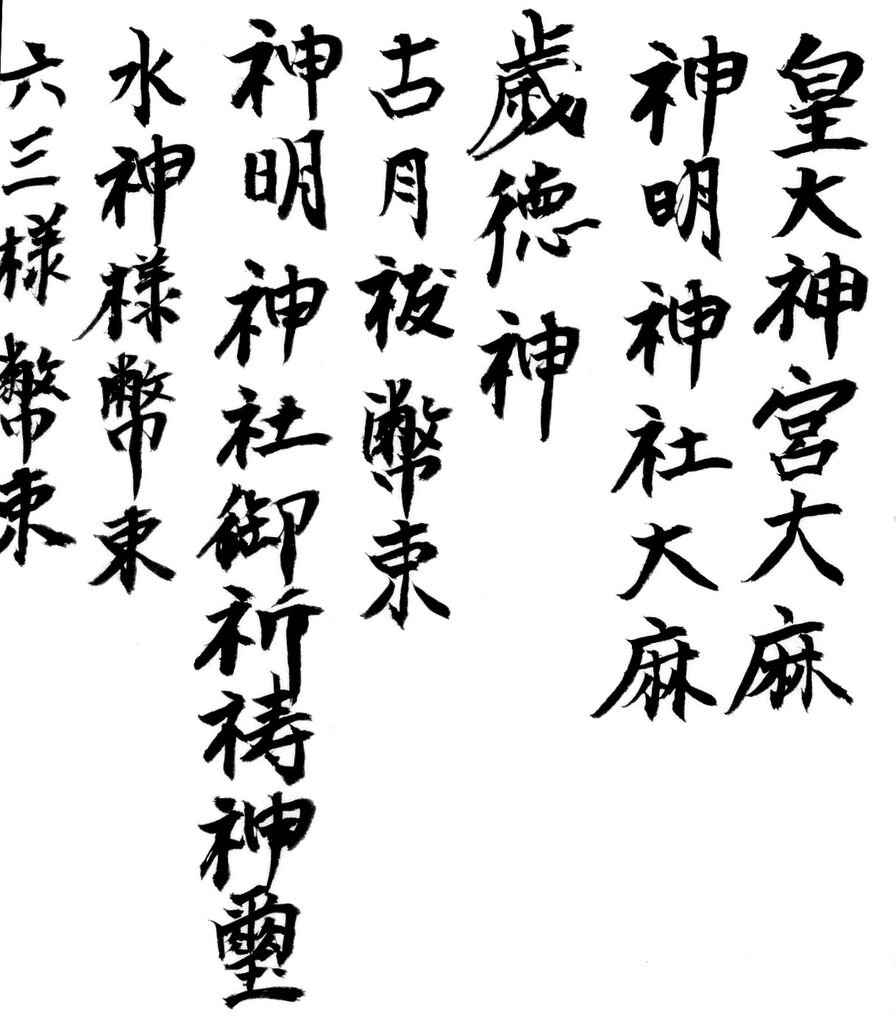 皇大神宮大麻
神明神社大麻
歲德神
古月祓幣束
神明神社御祈祷神璽
水神様幣束
六三様幣束